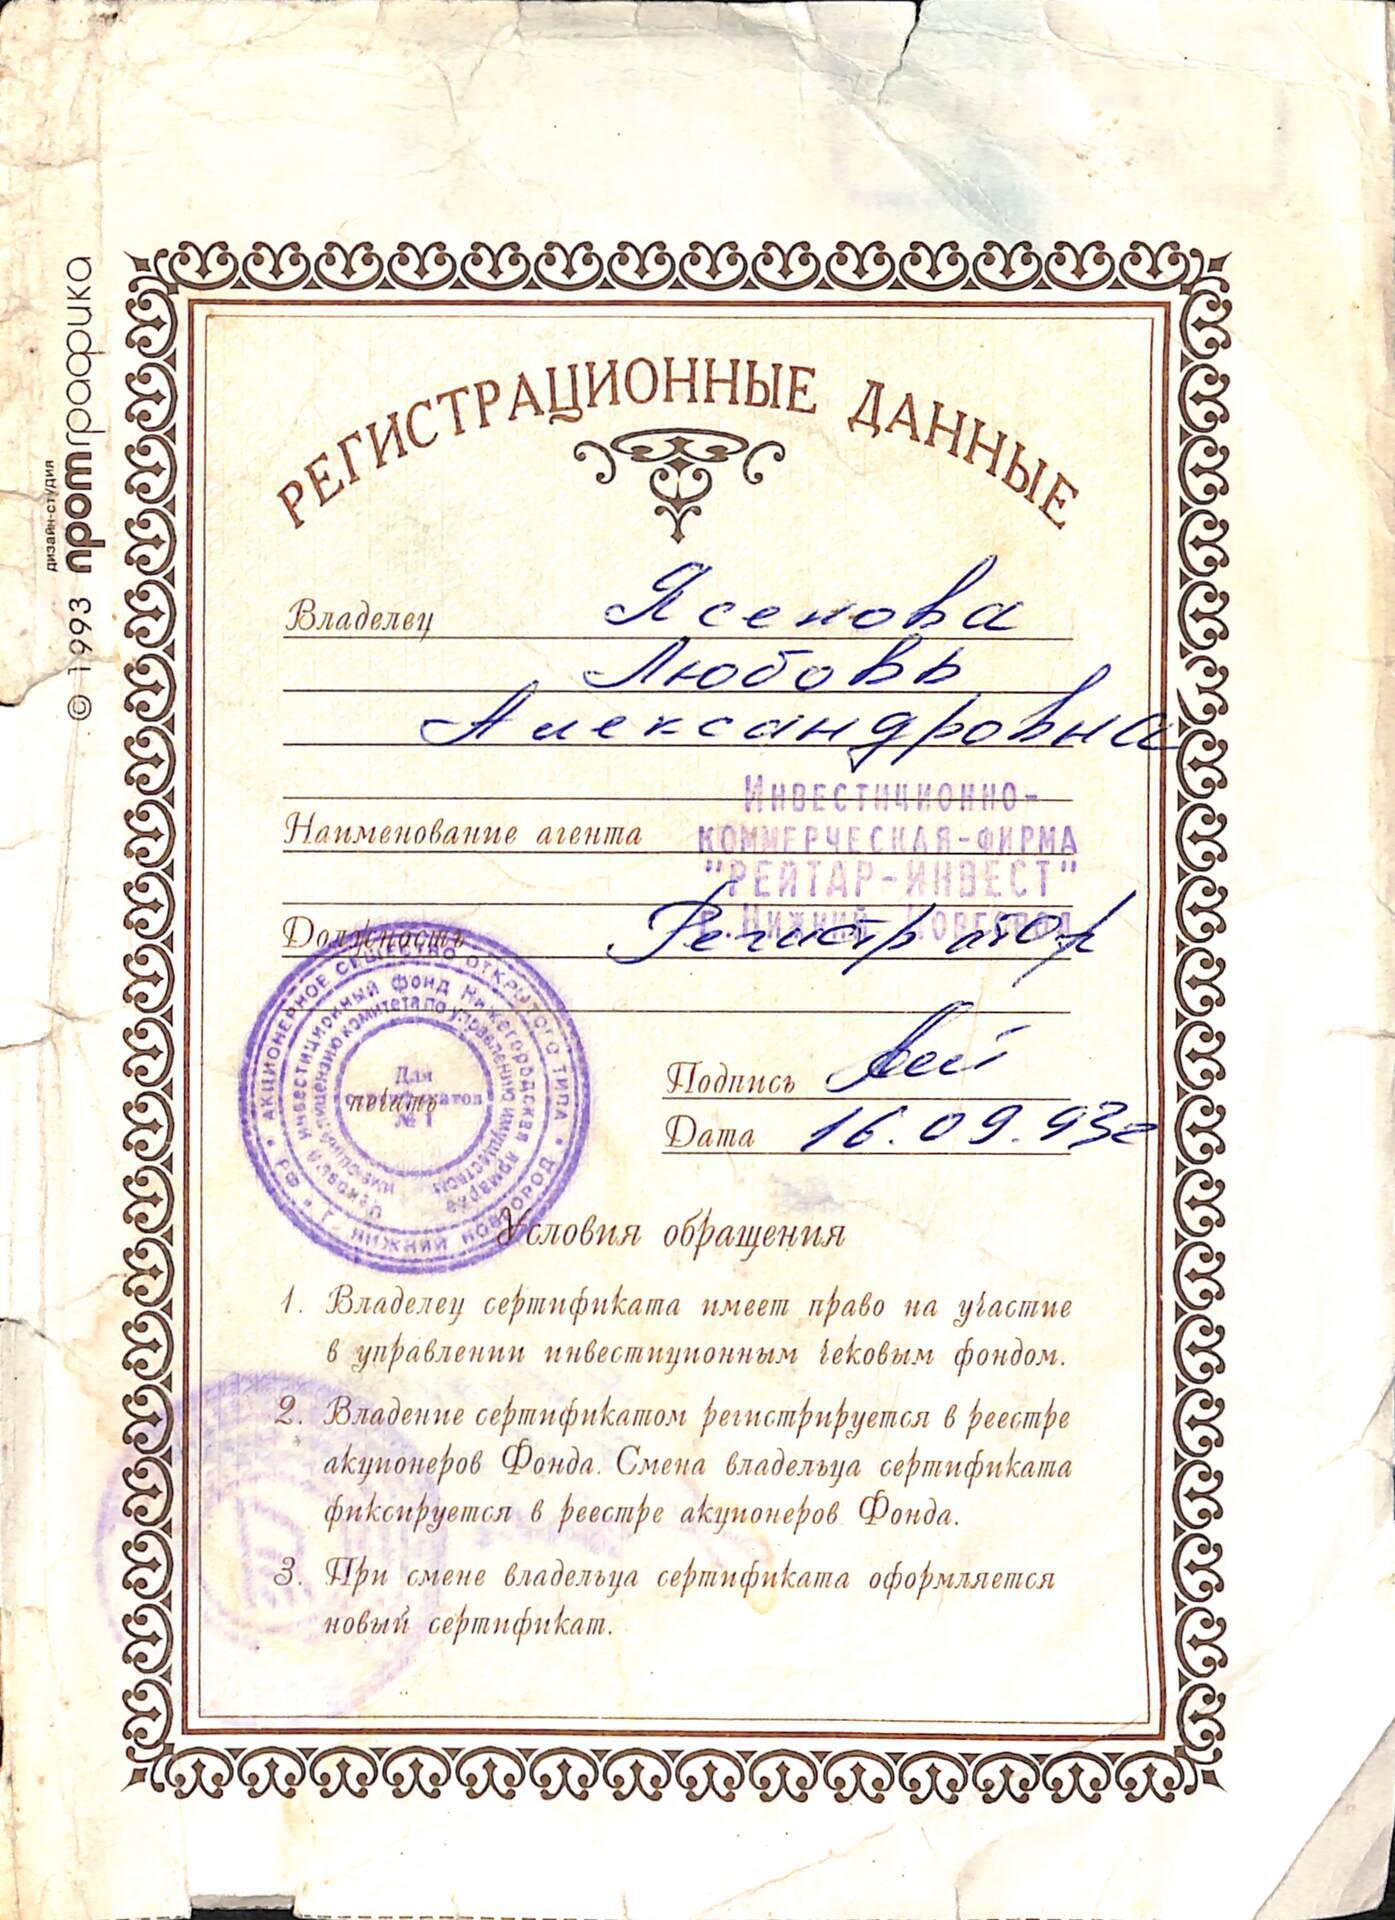 РЕГИСТРАЦИОННЫЕ ДАННЫЕ
Владелец Ясенова
Любовь
Александровна
Наименование агента ИНВЕСТИЦИОННО-
КОММЕРЧЕСКАЯ-ФИРМА
"РЕЙТАР-ИНВЕСТ"
Г.НИЖНИЙ НОВГОРОД
Должность Регистратор
АКЦИОНЕРНОЕ ОБЩЕСТВО ОТКРЫТОГО ТИПА
РФ • Г. НИЖНИЙ НОВГОРОД
Инвестиционный фонд Нижегородская ярмарка
лицензию комитета по управлению имуществом
Для
сертификатов
№ 1
печать
Подпись
Дата 16.09.93г
Условия обращения
1. Владелец сертификата имеет право на участие
в управлении инвестиционным чековым фондом.
2. Владение сертификатом регистрируется в реестре
акционеров Фонда. Смена владельца сертификата
фиксируется в реестре акционеров Фонда.
3. При смене владельца сертификата оформляется
новый сертификат.
© 1993 дизайн-студия промграфика